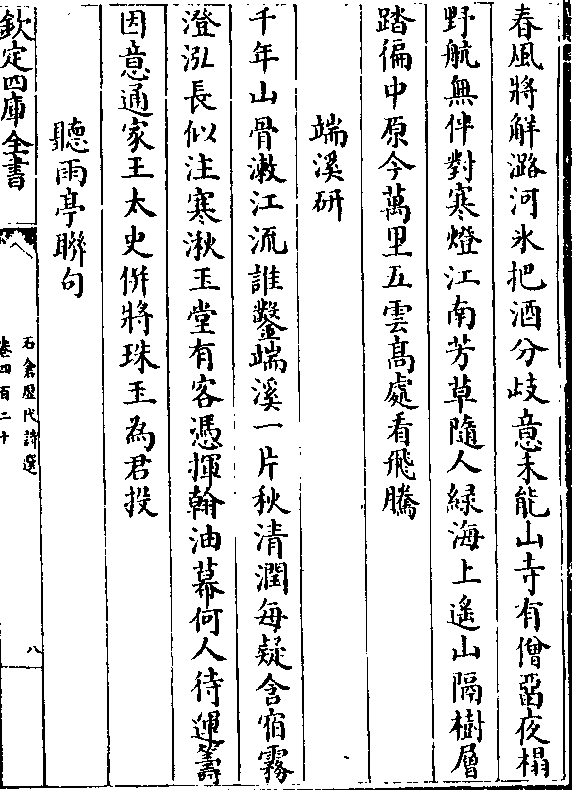 春風將解潞河氷把酒分歧意未能山寺有僧留夜榻
野航無伴對寒燈江南芳草隨人緑海上遙山隔樹層
踏徧中原今萬里五雲髙處看飛騰
端溪研
千年山骨漱江流誰鑿端溪一片秋清潤每疑含宿霧
澄泓長似注寒湫玉堂有客憑揮翰油幕何人待運籌
因意通家王太史倂將珠玉為君投
聽雨亭聯句
欽定四庫全書
石倉歷代詩選
卷四百二十
八